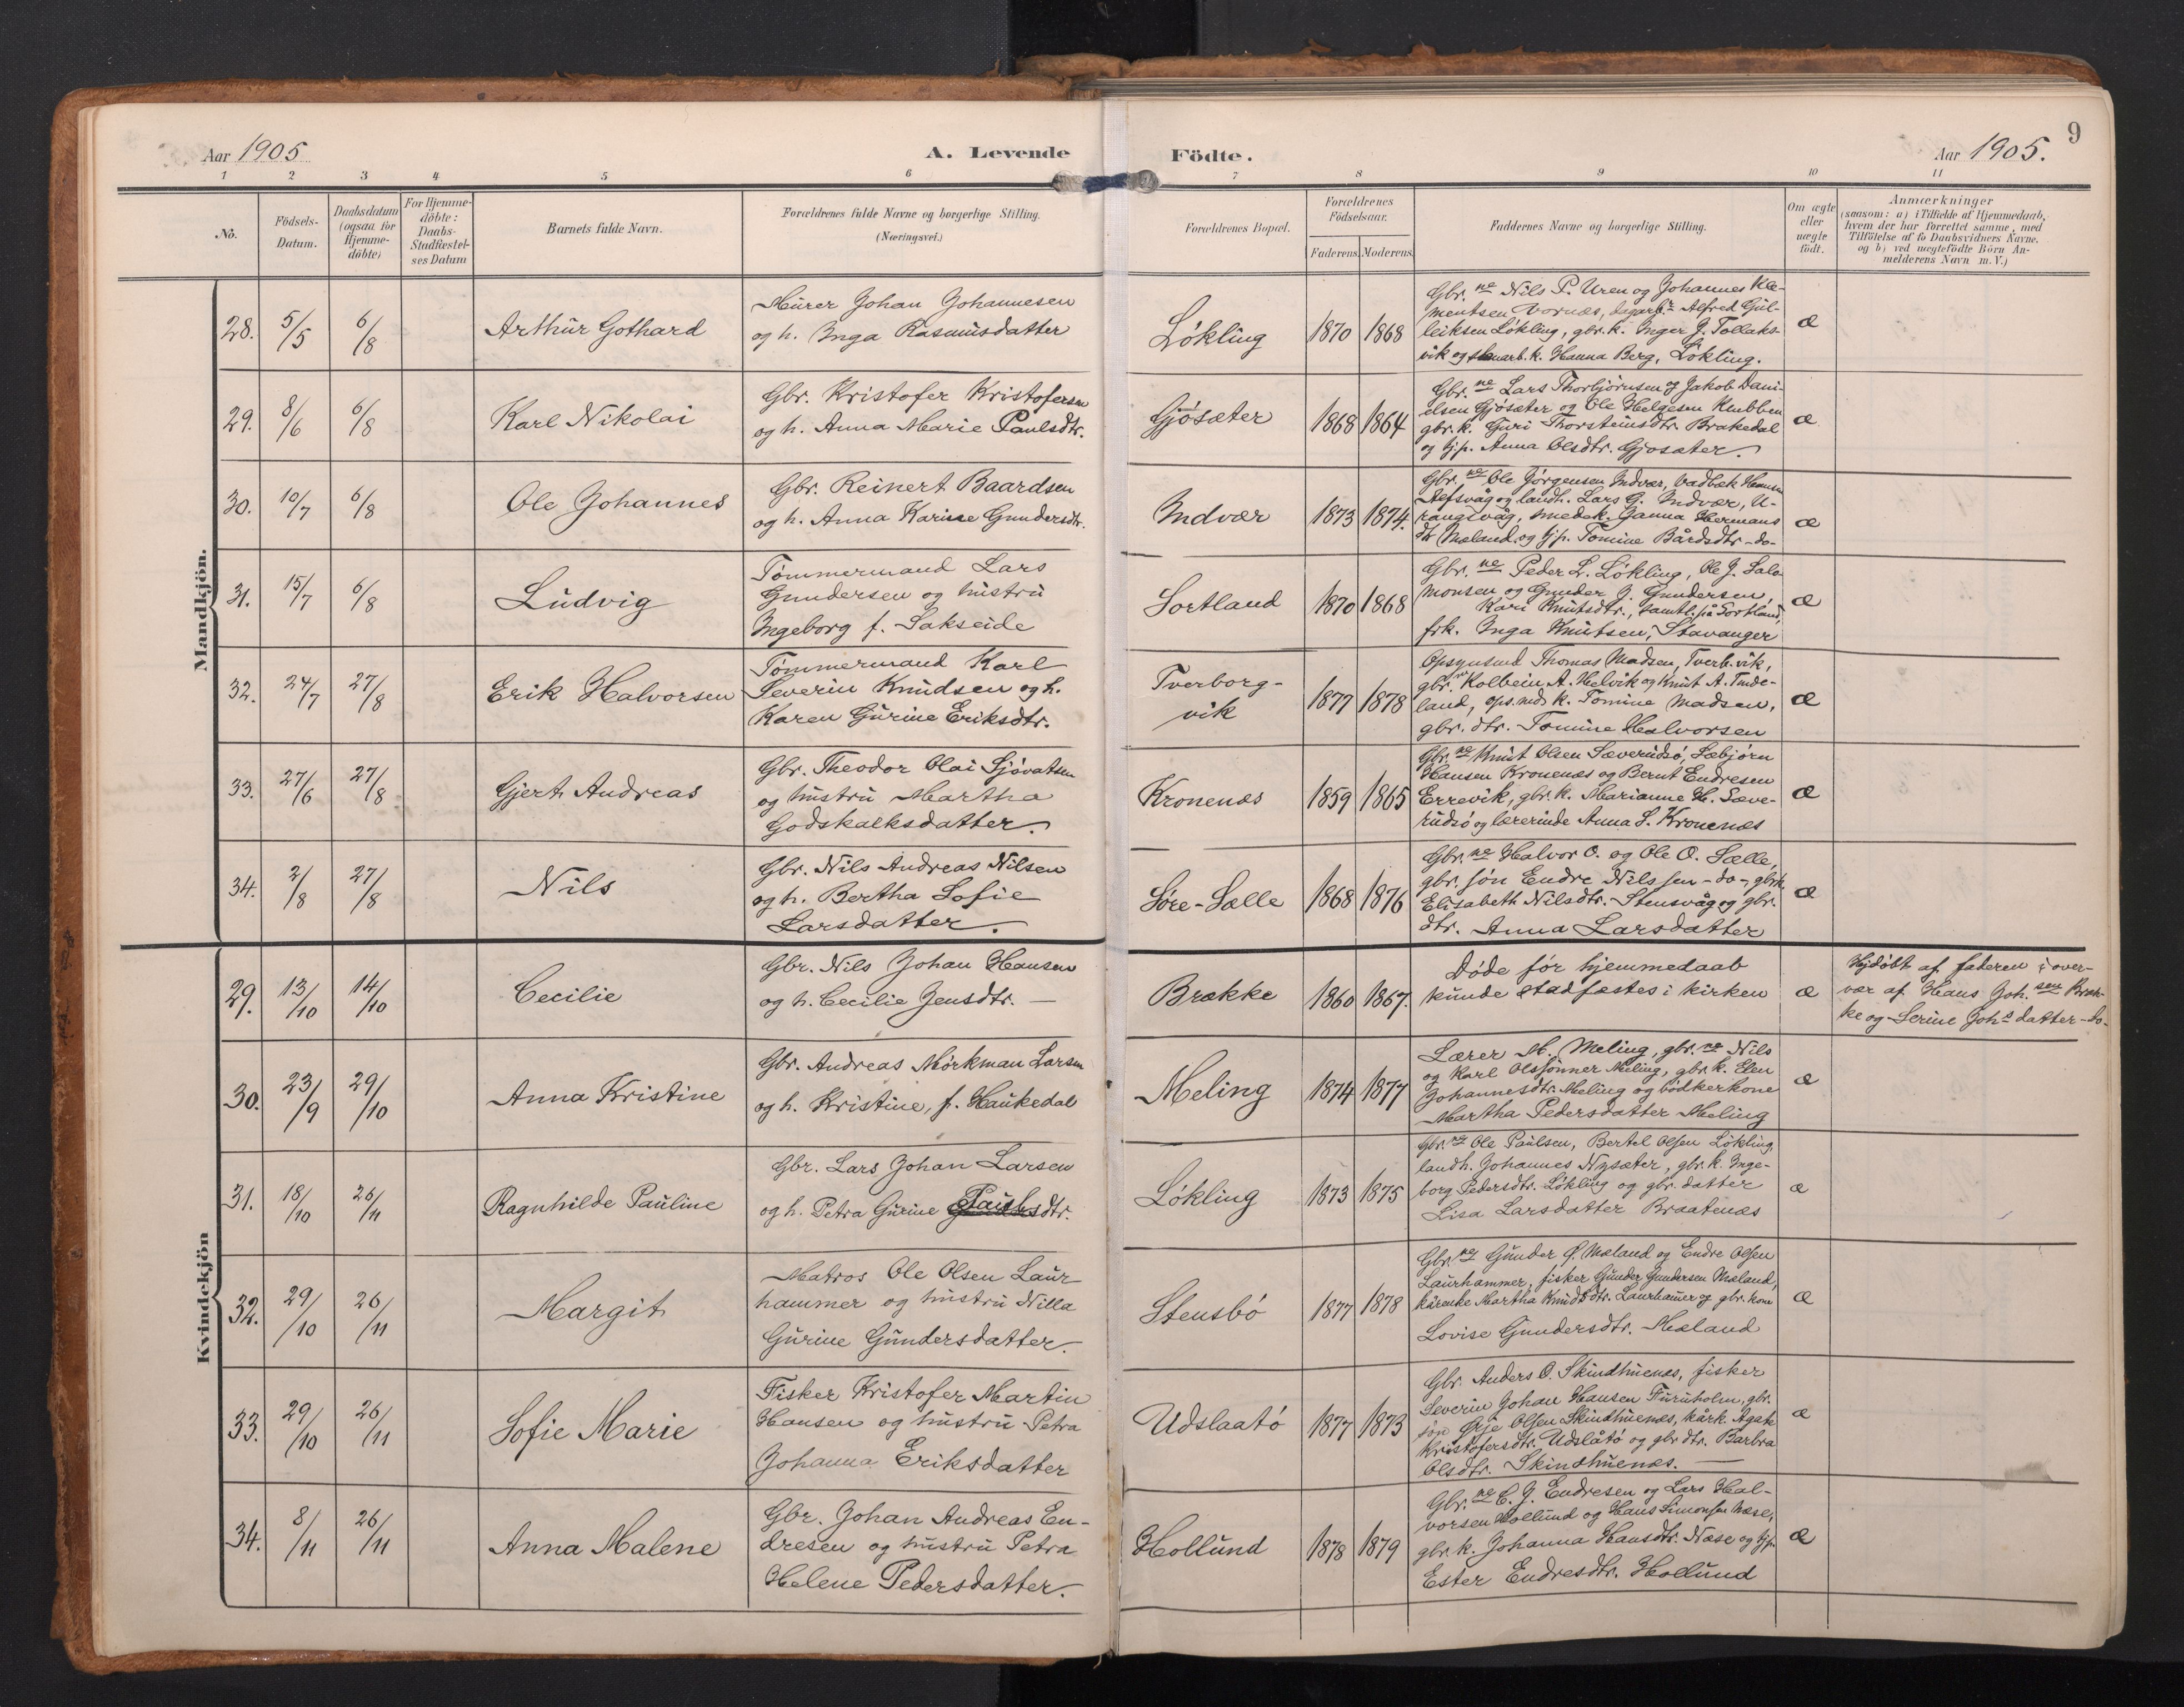 9
Aar 1905
A. Levende
Födte.
Aar 1905.
1 2 3 4 5 6 7 8 9 10 11
No.
Födsels-
Datum.
Daabsdatum
(ogsaa for
Hjemme-
döbte)
For Hjemme-
döbte:
Daabs-
Stadfæstel-
ses Datum
Barnets fulde Navn.
Forældrenes fulde Navne og borgerlige Stilling.
(Næringsvei.)
Forældrenes Bopæl.
Forældrenes
Födselsaar.
Faderens. Moderens.
Faddernes Navne og borgerlige Stilling.
Om ægte
eller
uægte
födt.
Anmærkninger
(saasom: a) i Tilfælde af Hjemmedaab,
hvem der har forrettet samme, med
Tilföielse af to Daabsvidners Navne.
og b) ved uægtefödte Börn An-
melderens Navn m.V.)
Mandkjön.
28. 5/5 6/8
Arthur Gothard
Murer Johan Johannesen
og h. Inga Rasmusdatter
Løkling
1870 1868
Gbr.ne Nils P. Uren og Johannes Kle-
mentsen Vornæs, Alfred Gul-
leiksen Løkling, gbr.k. Inger J. Tollaks-
vik og k. Hanna Berg, Løkling.
æ
29. 8/6 6/8
Karl Nikolai
Gbr. Kristofer Kristofersen
og h. Anna Marie Paulsdtr.
Gjøsæter
1868 1864
Gbr.ne Lars Thorbjørnsen og Jakob Dani-
elsen Gjøsæter og Ole Helgesen Klubben
gbr.k. Guri Thorsteinsdtr. Brakedal
og tjp. Anna Olsdtr. Gjøsæter.
æ
30. 10/7 6/8
Ole Johannes
Gbr. Reinert Baardsen
og h. Anna Karine Gundersdtr.
Indvær
1873 1874.
Gbr.ne Ole Jørgensen Indvær, Hansen
og landh. Lars G. Indvær, U-
rangsvåg, smedek. Janna Hermans
dtr Mæland, og tjp. Tomine Bårdsdtr -do-
æ
31. 15/7 6/8
Ludvig
Tømmermand Lars
Gundersen og hustru
Ingeborg f. Sakseide
Sortland
1870 1868
Gbr.ne Peder L. Løkling, Ole J. Salo-
monsen og Gunder J. Gundersen,
Kari Knutsdtr., samtl. på Sortland,
frk. Inga Knutsen, Stavanger
æ
32. 24/7 27/8
Erik Halvorsen
Tømmermand Karl
Severin Knudsen og h.
Karen Gurine Eriksdtr.
Tverborg-
vik
1877 1878
Opsynsmd Thomas Madsen, Tverb.vik,
gbr.ne Kolbein A. Helvik og Knut A. Tinde-
land, ops.mds k. Tomine Madsen,
gbr. dtr. Tomine Halvorsen
æ
33. 27/6 27/8
Gjert Andreas
Gbr. Theodor Olai Sjøvatsen
og hustru Martha
Godskalksdatter.
Kronenæs
1859 1865
Gbr.ne Knut Olsen Sæverudsø, Sæbjørn
Hansen Kronenæs og Bernt Endresen
Errevik, gbr.k. Marianne H. Sæve-
rudsø og lærerinde Anna S. Kronenæs
æ
34. 2/8 27/8
Nils
Gbr. Nils Andreas Nilsen
og h. Bertha Sofie
Larsdatter.
Søre-Sælle
1868 1876
Gbr.ne Halvor O. og Ole O. Sælle,
gbr. søn Endre Nilssen -do-, gbr.k.
Elisabeth Nilsdtr. Stensvåg og gbr.
dtr. Anna Larsdatter
æ
Kvindekjön
29. 13/10 14/10
Cecilie
Gbr. Nils Johan Hansen
og h. Cecilie Jensdtr. —
Brække
1860 1867.
Døde før hjemmedaab
kunde stadfæstes i kirken
æ
Hjdøbt af faderen i over-
vær af Hans Joh.sen Bræk-
ke og Serine Johs datter -do-
30. 23/9 29/10
Anna Kristine
Gbr. Andreas Mørkman Larsen
og h. Kristine, f. Haukedal
Meling
1874 1877
Lærer M. Meling, gbr.ne Nils
og Karl Olssønner Meling, gbr.k. Elen
Johannesdtr. Meling og bødkerkone
Martha Pedersdatter Meling
æ
31. 18/10 26/11
Ragnhilde Pauline
Gbr. Lars Johan Larsen
og h. Petra Gurine Paulsdtr.
Løkling
1873 1875
Gbr.ne Ole Paulsen, Bertel Olsen Løkling,
landh. Johannes Nysæter, gbr.k. Inge-
borg Pedersdtr. Løkling og gbr. datter
Lisa Larsdatter Braatenæs
æ
32. 29/10 26/11
Margit
Matros Ole Olsen Laur-
hammer og hustru Nilla
Gurine Gundersdatter.
Stensbø
1877 1878
Gbr.ne Gunder Ø. Mæland og Endre Olsen
Laurhammer, fisker Gunder Gundersen Mæland,
kårenke Martha Knudsdtr. Laurhamer og gbr. kone
Lovise Gundersdtr. Mæland
æ
33. 29/10 26/11
Sofie Marie
Fisker Kristofer Martin
Hansen og hustru Petra
Johanna Eriksdatter
Udslaatø
1877 1873
Gbr. Anders O. Skindhuenæs, fisker
Severin Johan Hansen Furuholm, gbr.
søn Ørje Olsen Skindhuenæs, kårk. Agate
Kristofersdtr. Udslåtø og gbr dtr. Barbra
Olsdtr. Skindhuenæs. —
æ
34. 8/11 26/11
Anna Malene
Gbr. Johan Andreas En-
dresen og hustru Petra
Helene Pedersdatter.
Hollund
1878 1879
Gbr.ne E. J. Endresen og Lars Hal-
vorsen Hollund og Hans Simonsen Næse,
gbr.k. Johanna Hansdtr. Næse og tjp.
Ester Endresdtr. Hollund
æ